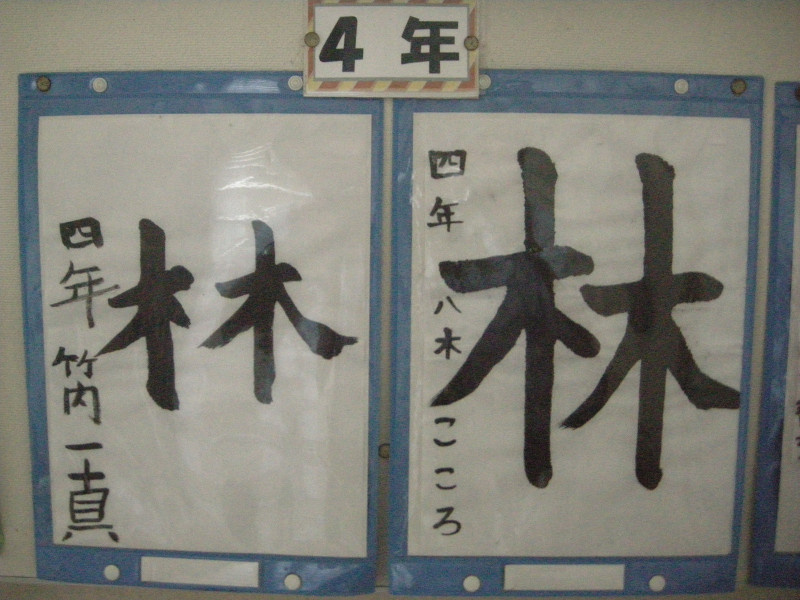 4年
林
四年 竹内一真
林
四年 八木こころ